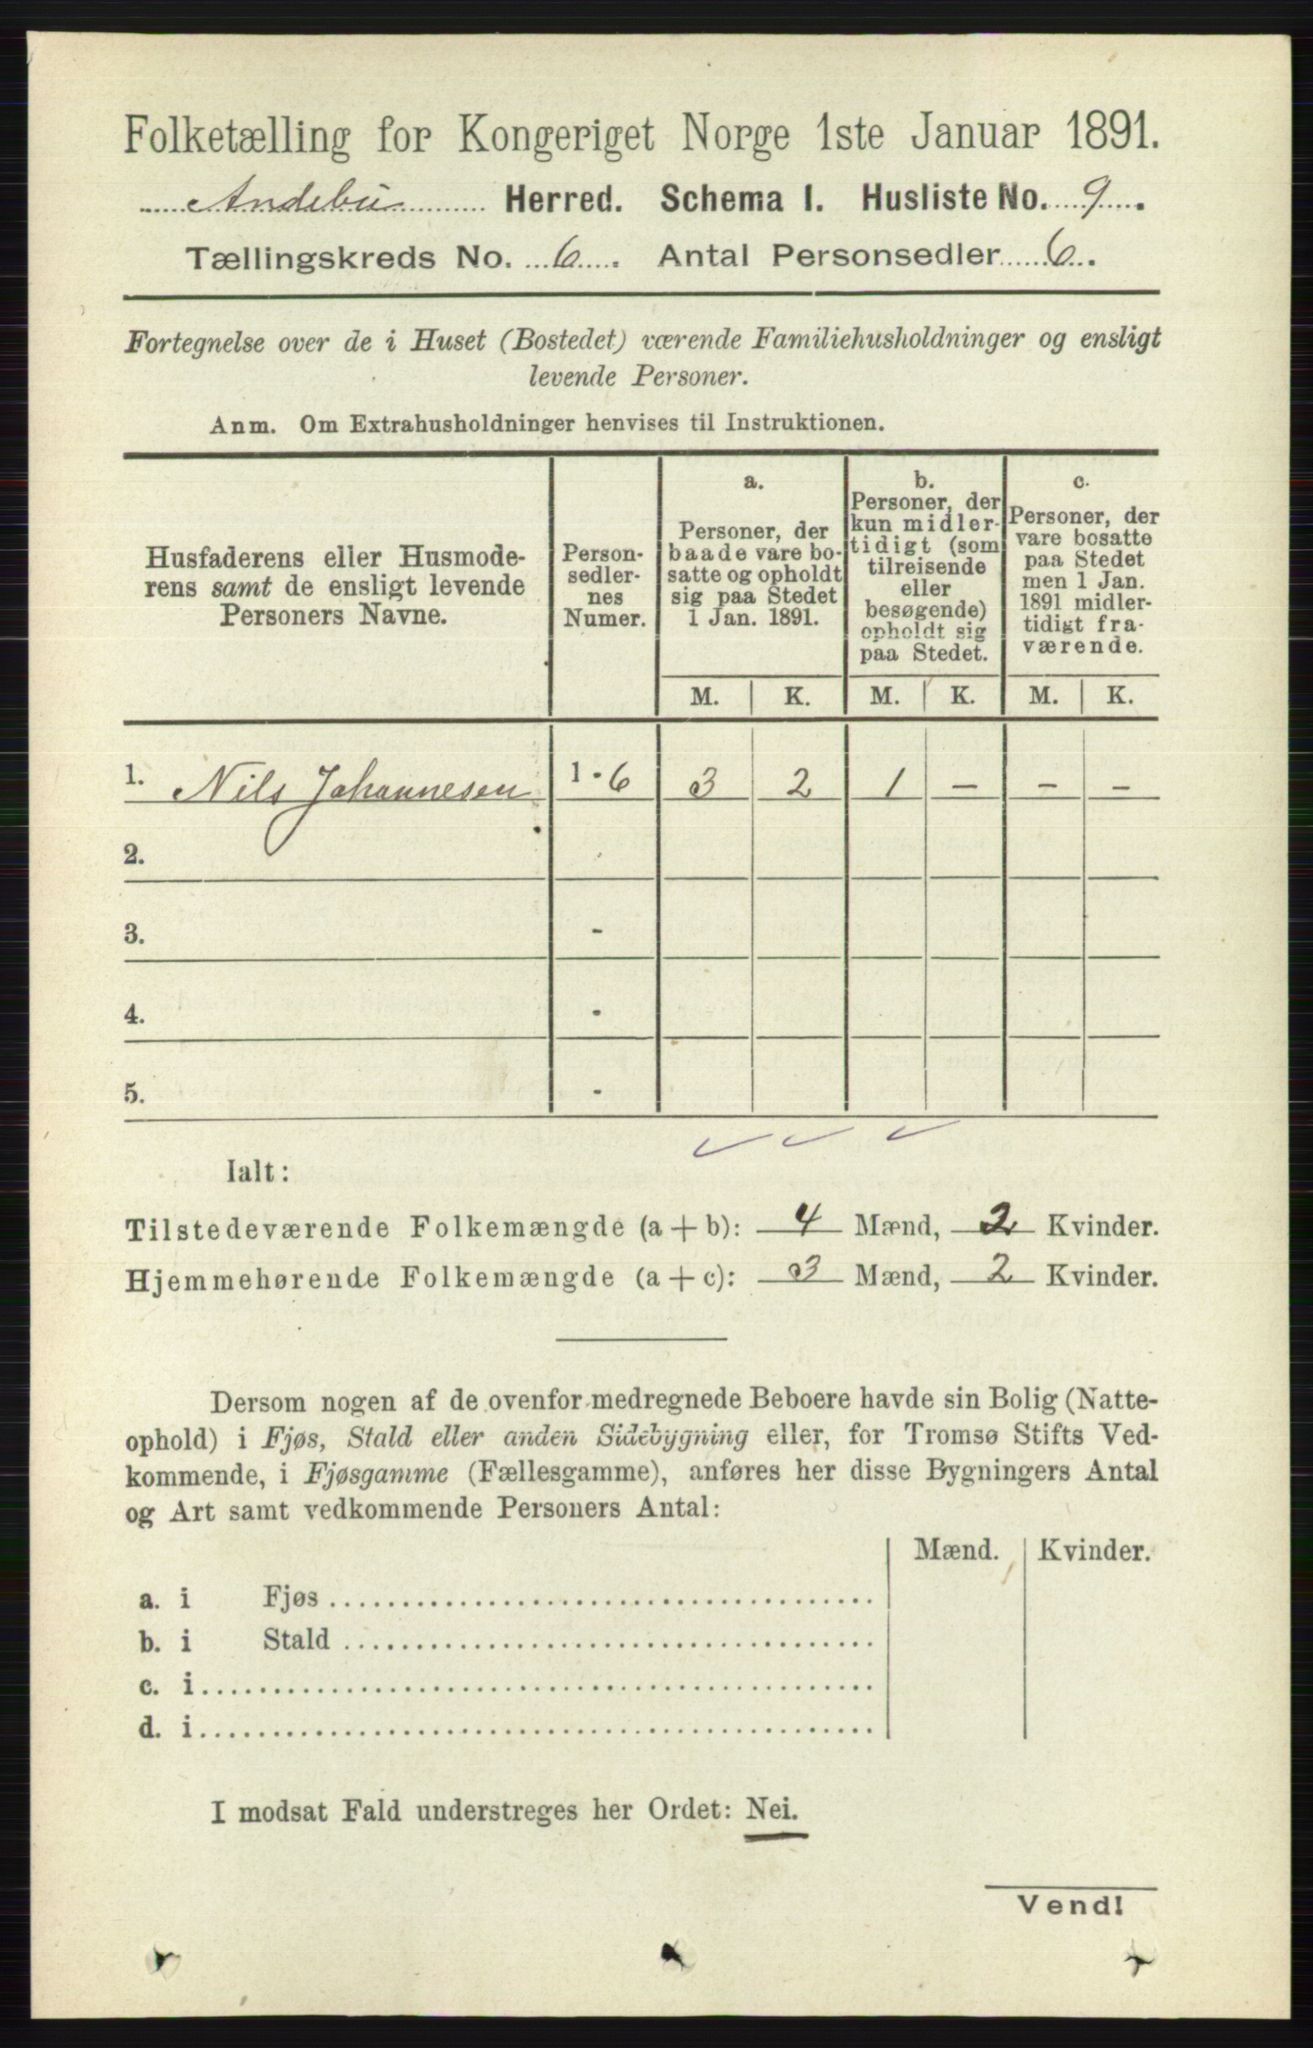 Folketælling for Kongeriget Norge 1ste Januar 1891.
Andebu Herred. Schema I. Husliste No. 9.
Tællingskreds No. 6. Antal Personsedler 6.
Fortegnelse over de i Huset (Bostedet) værende Familiehusholdninger og ensligt
levende Personer.
Anm. Om Extrahusholdninger henvises til Instruktionen.
Husfaderens eller Husmode-
rens samt de ensligt levende
Personers Navne.
Person-
sedler-
nes
Numer.
a.
Personer, der
baade vare bo-
satte og opholdt
sig paa Stedet
1 Jan. 1891.
b.
Personer, der
kun midler-
tidigt (som
tilreisende
eller
besøgende)
opholdt sig
paa Stedet.
c.
Personer, der
vare bosatte
paa Stedet
men 1 Jan.
1891 midler-
tidigt fra-
værende.
M. K. M. K. M. K.
1. Nils Johannesen 1 - 6 3 2 1 - - -
2.
3. -
4. -
5. -
Ialt:
Tilstedeværende Folkemængde (a + b): 4 Mænd, 2 Kvinder.
Hjemmehørende Folkemængde (a + c): 3 Mænd, 2 Kvinder.
Dersom nogen af de ovenfor medregnede Beboere havde sin Bolig (Natte-
ophold) i Fjøs, Stald eller anden Sidebygning eller, for Tromsø Stifts Ved-
kommende, i Fjøsgamme (Fællesgamme), anføres her disse Bygningers Antal
og Art samt vedkommende Personers Antal:
Mænd. Kvinder.
a. i Fjøs
b. i Stald
c. i
d. i
I modsat Fald understreges her Ordet: Nei.
Vend!